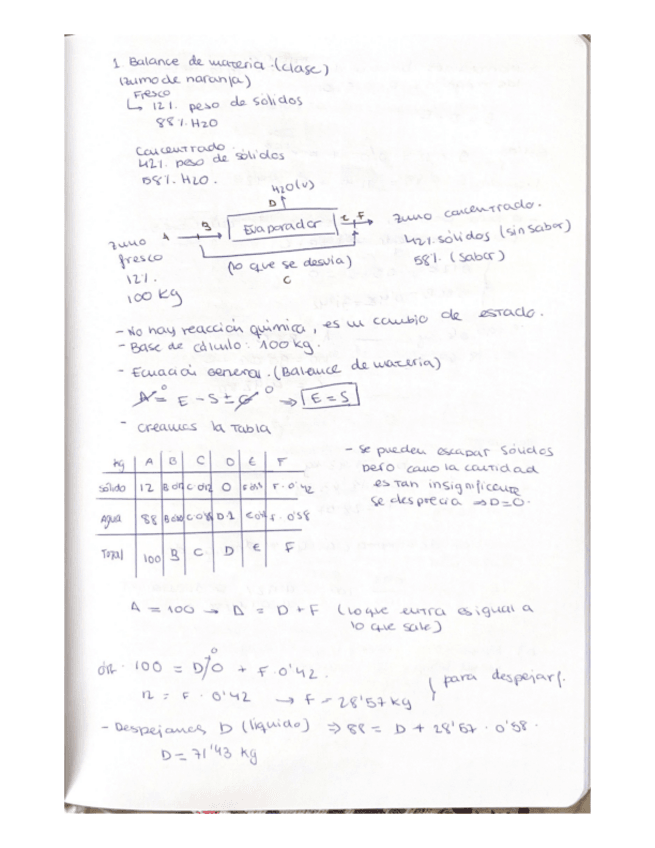 1 Balance de materia (clase)
(zumo de naranja)
Fresco
↳ 12%. peso de sólidos
88%. H2O
Concentrado
42%. peso de sólidos
58%. H2O.
H2O(v)
D
A B Evaporador E F zumo concentrado.
zumo fresco
12%.
100 kg
(lo que se desvía)
C
42%. sólidos (sin sabor)
58%. (sabor)
- No hay reacción química, es un cambio de estado.
- Base de cálculo: 100 kg.
- Ecuación general. (Balance de materia)
A = E - S ± G ⇒ E = S
0 0
- Creamos la tabla
kg A B C D E F
sólido 12 B 0'12 C 0'12 0 F. 0'42
Agua 88 D.1 F. 0'58
Total 100 B C D E F
- se pueden escapar sólidos
pero como la cantidad
es tan insignificante
se desprecia ⇒ D=0.
A = 100 → A = D + F (lo que entra es igual a
lo que sale)
0'12 · 100 = D/0 + F. 0'42.
0
12 = F · 0'42 → F = 28'57 kg
} para despejar f.
- Despejamos D (líquido) ⇒ 88 = D + 28'57 · 0'58.
D = 71'43 kg